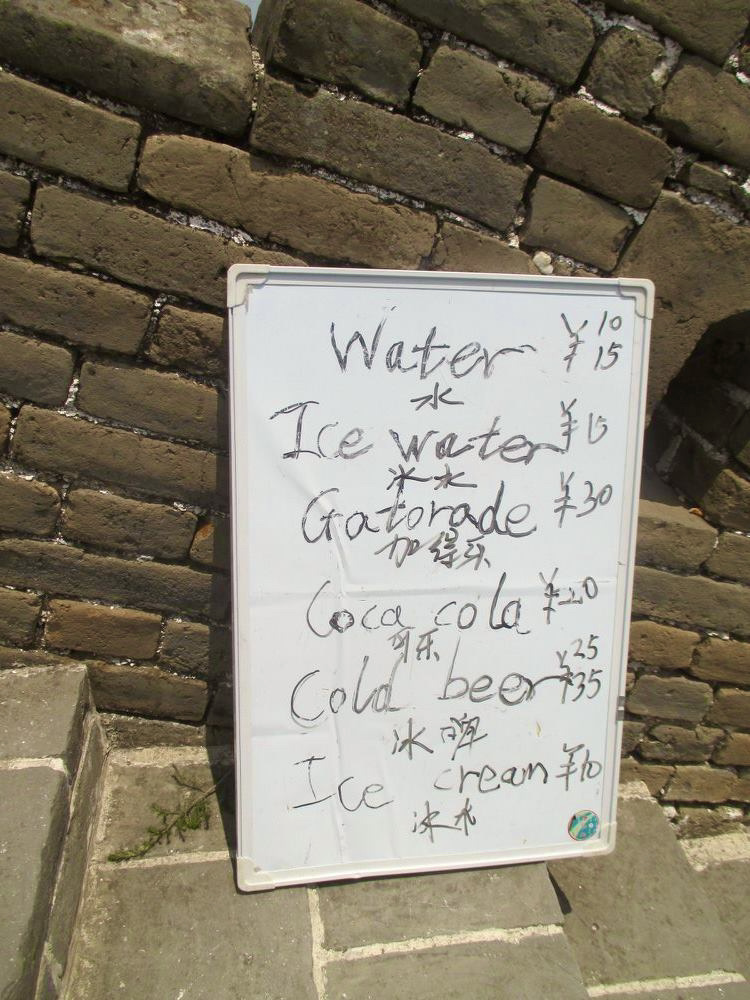 Water ¥10
¥15
水
Ice water ¥15
冰水
Gatorade ¥30
加得乐
Coca cola ¥20
可乐
Cold beer ¥25
¥35
冰啤
Ice cream ¥10
冰水